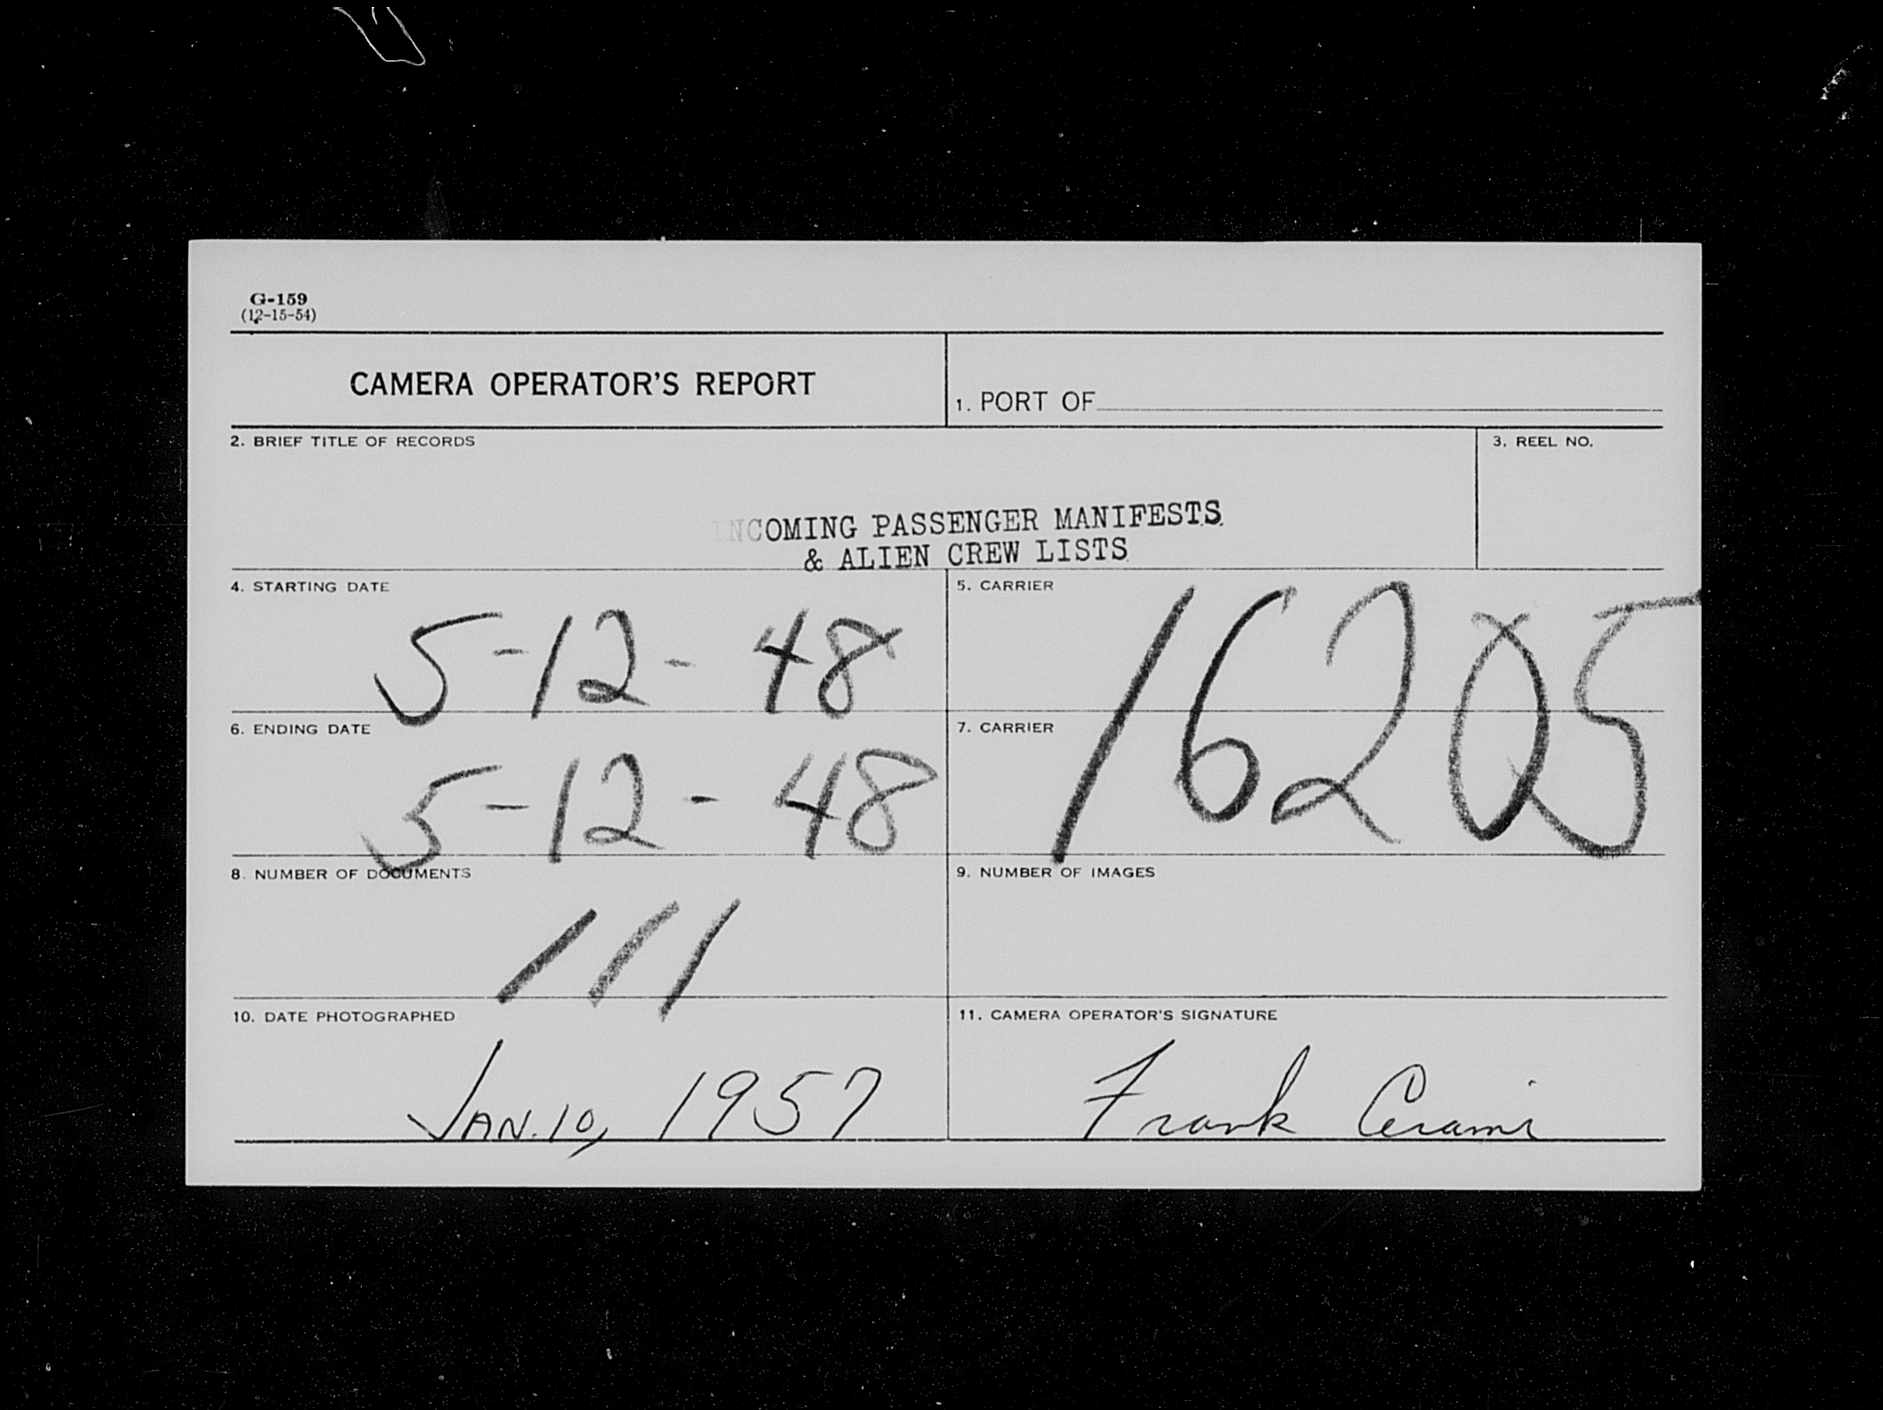 G-159
(12-15-54)
CAMERA OPERATOR'S REPORT
1. PORT OF
2. BRIEF TITLE OF RECORDS
3. REEL NO.
INCOMING PASSENGER MANIFESTS
& ALIEN CREW LISTS
4. STARTING DATE
5-12-48
5. CARRIER
16205
6. ENDING DATE
5-12-48
7. CARRIER
8. NUMBER OF DOCUMENTS
111
9. NUMBER OF IMAGES
10. DATE PHOTOGRAPHED
JAN. 10, 1957
11. CAMERA OPERATOR'S SIGNATURE
Frank Cerami